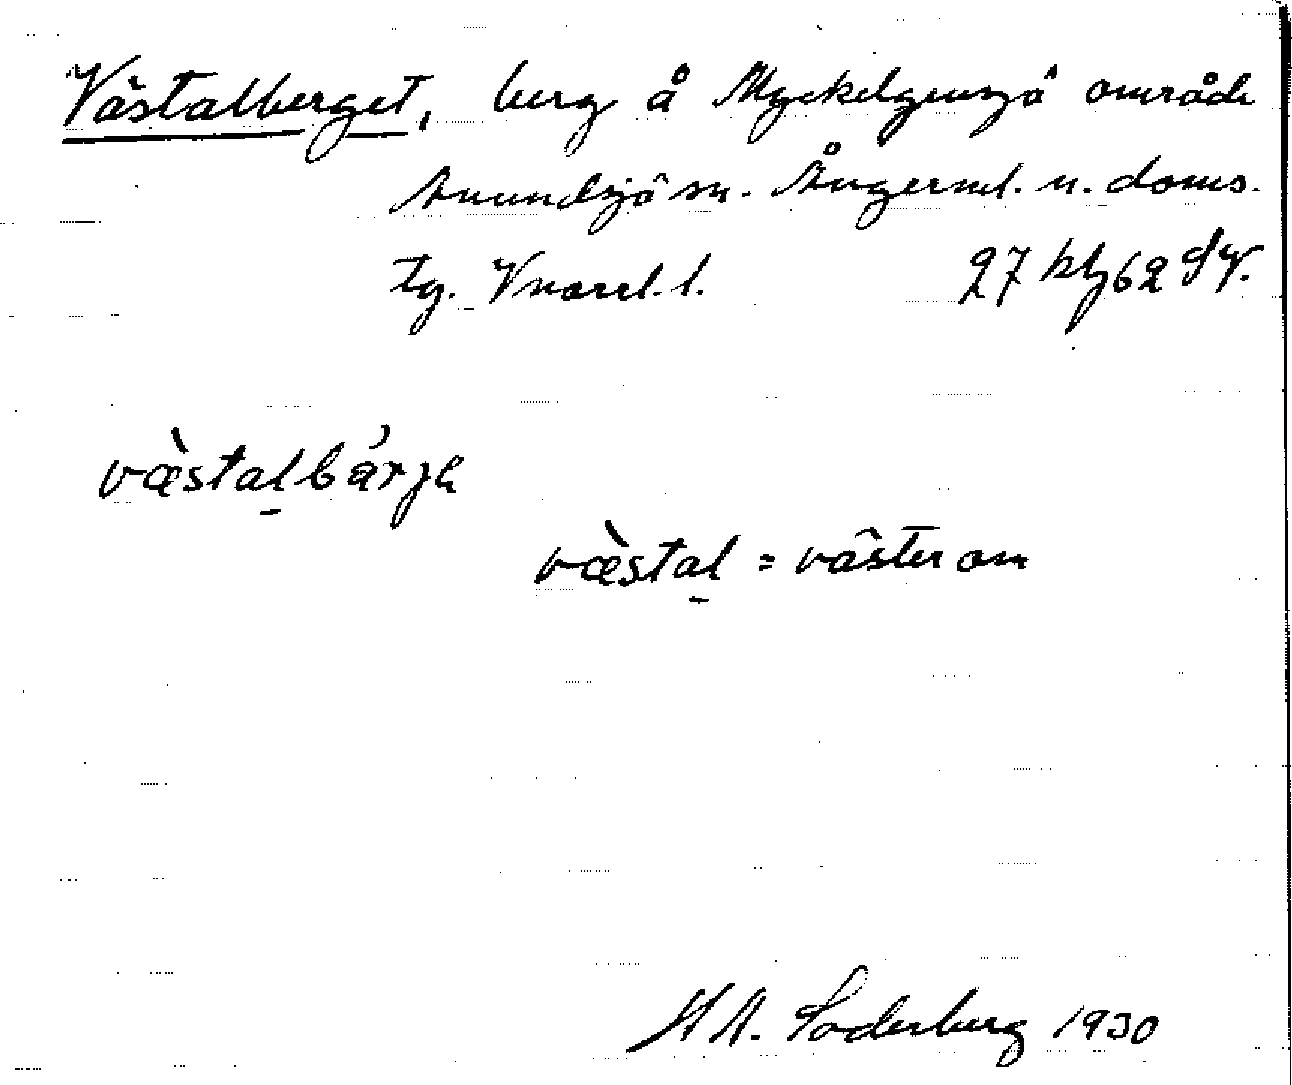 Västalberget, berg å Myckelgensjö område
Anundsjö sn. Ångerml. n. doms.
tg. Vnorrl. l. 27 kbl 62 SV.
væ̀stalbár̓jh
væ̀stal = väster om
H A. Söderberg 1930